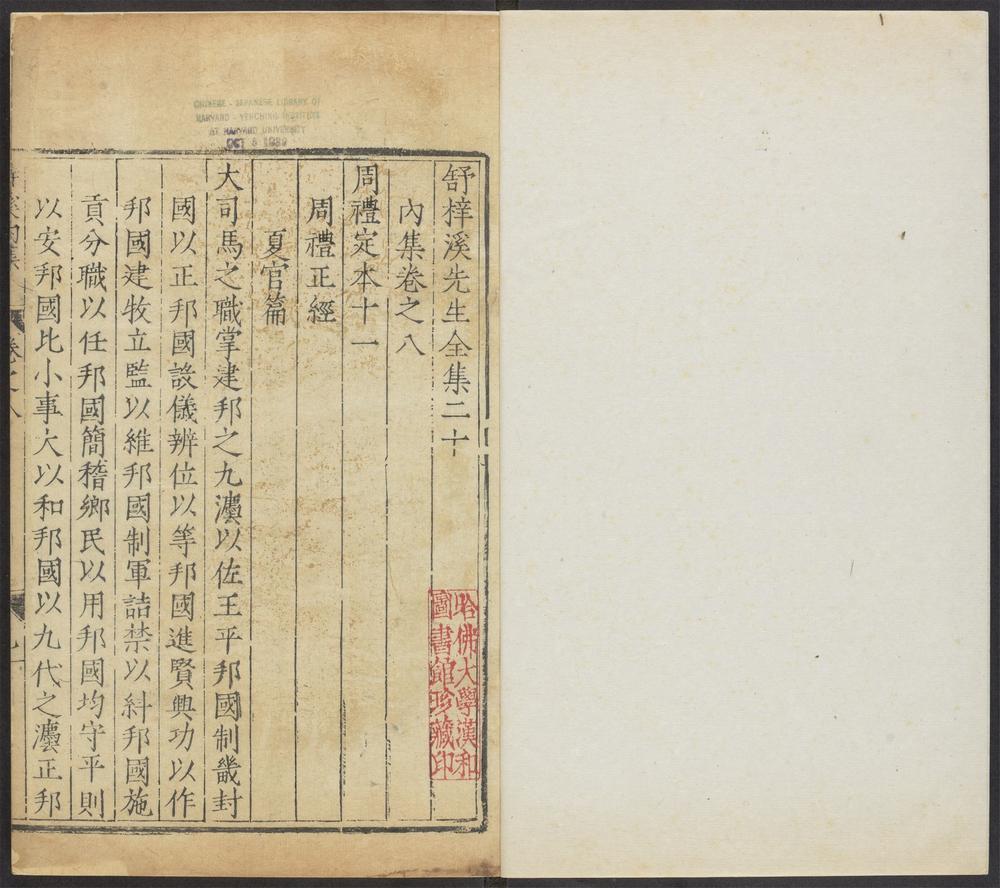 CHINESE - JAPANESE LIBRARY OF
HARVARD - YENCHING INSTITUTE
AT HARVARD UNIVERSITY
OCT 5 1939
舒梓溪先生全集二十
內集卷之八
周禮定本十一
周禮正經
夏官篇
大司馬之職掌建邦之九灋以佐王平邦國制畿封
國以正邦國設儀辨位以等邦國進賢興功以作
邦國建牧立監以維邦國制軍詰禁以糾邦國施
貢分職以任邦國簡稽鄉民以用邦國均守平則
以安邦國比小事大以和邦國以九伐之灋正邦
哈佛大學漢和
圖書館珍藏印
卷之八